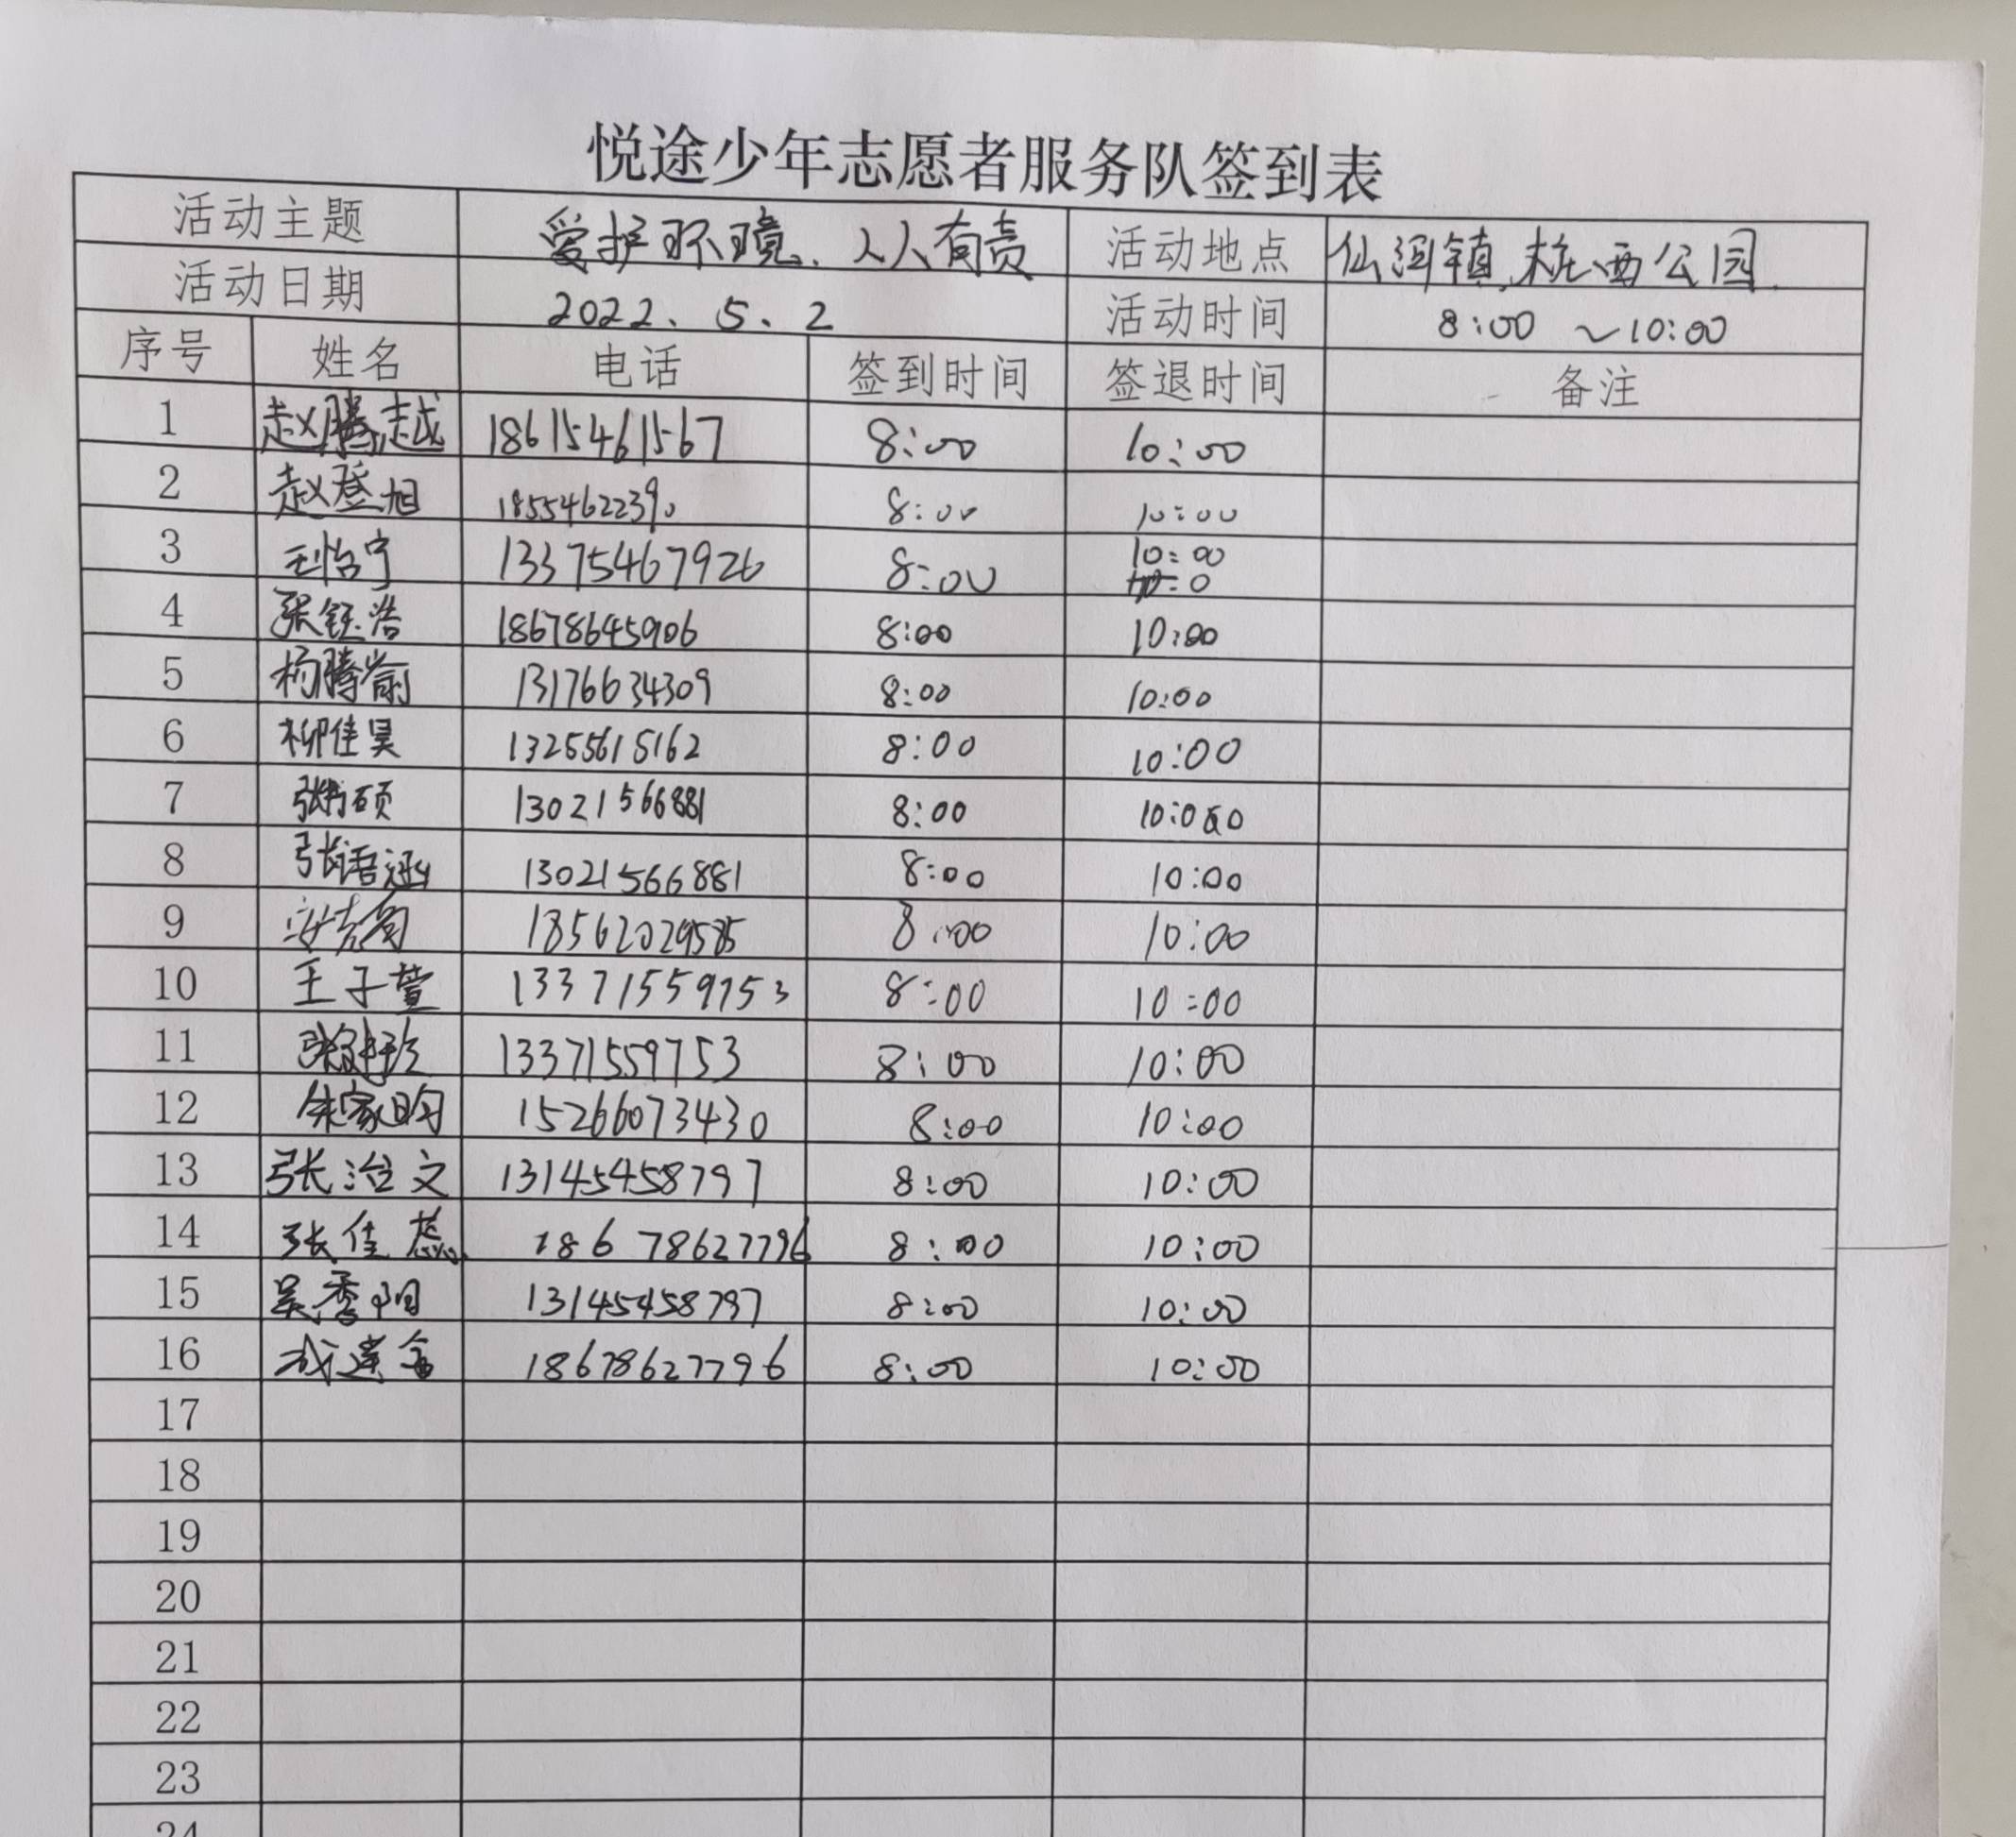 悦途少年志愿者服务队签到表
活动主题 爱护环境、人人有责 活动地点 仙河镇.桩西公园.
活动日期 2022、5、2 活动时间 8:00 ~10:00
序号 姓名 电话 签到时间 签退时间 备注
1 赵腾越 18615461567 8:00 10:00
2 赵登旭 18554622390 8:00 10:00
3 王怡宁 13375467926 8:00 10:00
4 张钰浩 18678645906 8:00 10:00
5 杨腾 13176634309 8:00 10:00
6 柳佳昊 13255615162 8:00 10:00
7 张 硕 13021566881 8:00 10:00
8 张语涵 13021566881 8:00 10:00
9 18562029585 8:00 10:00
10 王子萱 13371559753 8:00 10:00
11 张 13371559753 8:00 10:00
12 家昀 15266073430 8:00 10:00
13 张治文 13145458797 8:00 10:00
14 张佳蕊 18678627796 8:00 10:00
15 吴秀阳 13145458797 8:00 10:00
16 18678627796 8:00 10:00
17
18
19
20
21
22
23
24